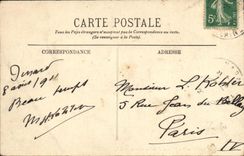 CARTE POSTALE
Tous les Pays étrangers n'acceptent pas la Correspondance au recto.
(Se renseigner à la Poste)
CORRESPONDANCE
ADRESSE
Dinard
8 août 1911
Beau temps
Monsieur L.
5 Rue Jean du Bellay
Paris
IV